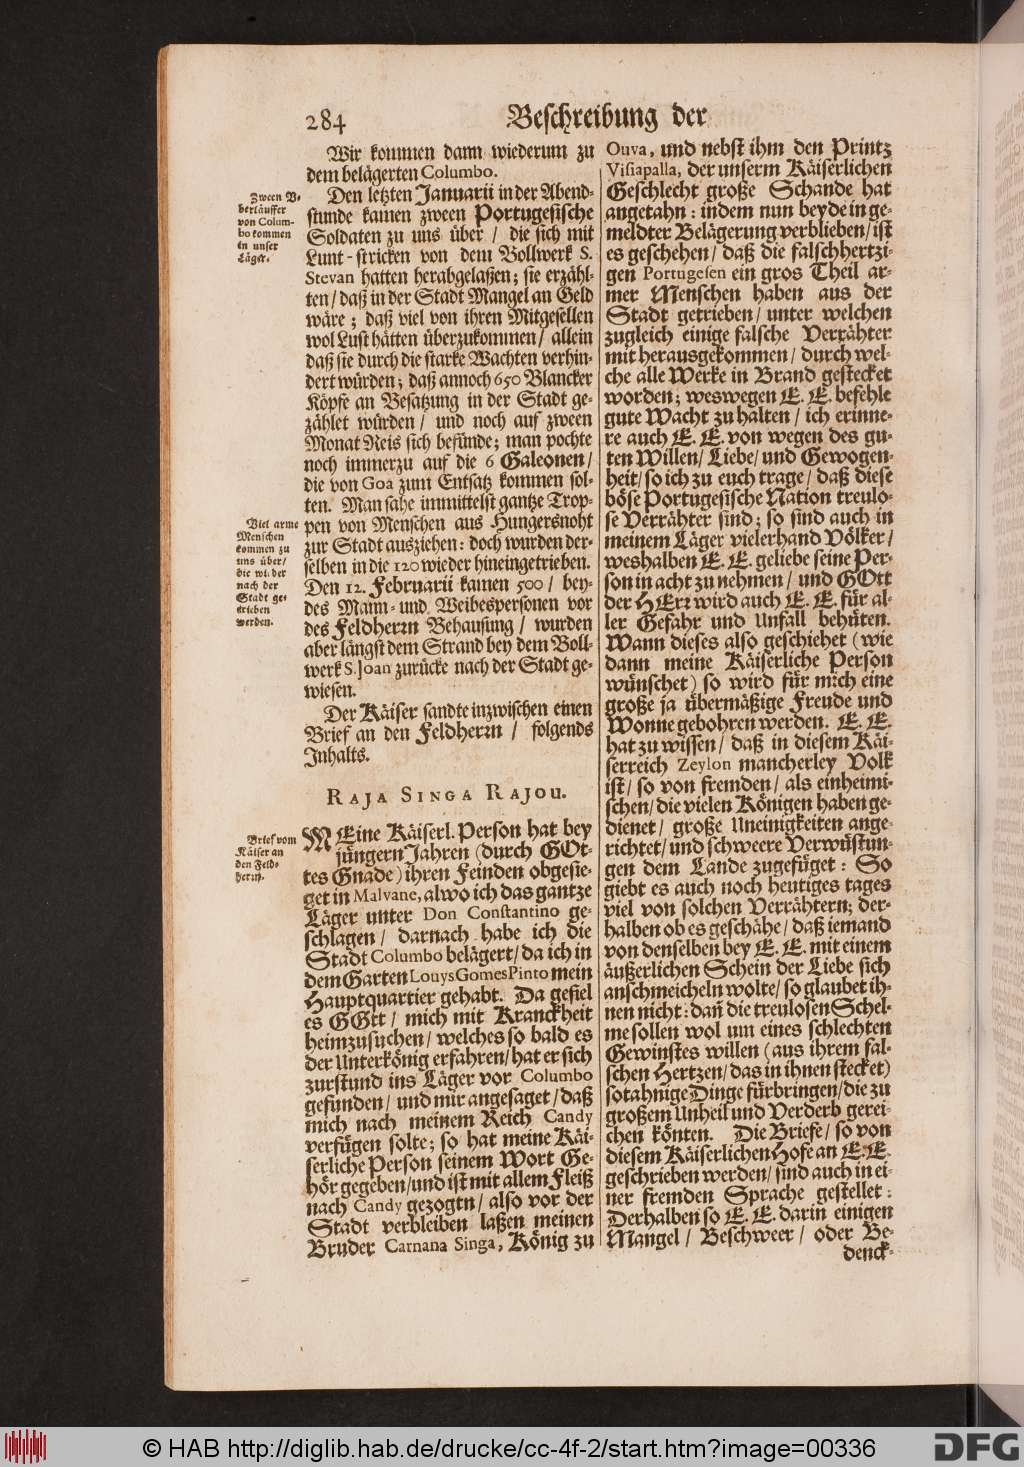 284
Beschreibung der
Wir kommen dann wiederum zu
dem belägerten Columbo.
Zween U-
berläuffer
von Colum-
bo kommen
in unser
Läger.
Den letzten Januarii in der Abend-
stunde kamen zween Portugesische
Soldaten zu uns über / die sich mit
Lunt-stricken von dem Bollwerk S.
Stevan hatten herabgelaßen; sie erzähl-
ten / daß in der Stadt Mangel an Geld
wäre; daß viel von ihren Mitgesellen
wol Lust hätten überzukommen / allein
daß sie durch die starke Wachten verhin-
dert würden; daß annoch 650 Blancker
Köpfe an Besatzung in der Stadt ge-
zählet würden / und noch auf zween
Monat Reis sich befünde; man pochte
noch immerzu auf die 6 Galeonen /
die von Goa zum Entsatz kommen sol-
ten. Man sahe immittelst gantze Trop-
Viel arme
Menschen
kommen zu
uns über /
die wider
nach der
Stadt ge-
trieben
werden.
pen von Menschen aus Hungersnoht
zur Stadt ausziehen: doch wurden der-
selben in die 120 wieder hineingetrieben.
Den 12. Februarii kamen 500 / bey-
des Mann- und Weibespersonen vor
des Feldherrn Behausung / wurden
aber längst dem Strand bey dem Boll-
werk S. Joan zurücke nach der Stadt ge-
wiesen.
Der Käiser sandte inzwischen einen
Brief an den Feldherrn / folgends
Inhalts.
RAJA SINGA RAJOU.
Brief vom
Käiser an
den Feld-
herrn.
MEine Käiserl. Person hat bey
jüngern Jahren (durch GOt-
tes Gnade) ihren Feinden obgesie-
get in Malvane, alwo ich das gantze
Läger unter Don Constantino ge-
schlagen / darnach habe ich die
Stadt Columbo belägert / da ich in
dem Garten Louys Gomes Pinto mein
Hauptquartier gehabt. Da gefiel
es GOtt / mich mit Kranckheit
heimzusuchen / welches so bald es
der Unterkönig erfahren / hat er sich
zurstund ins Läger vor Columbo
gefunden / und mir angesaget / daß
mich nach meinem Reich Candy
verfügen solte; so hat meine Käi-
serliche Person seinem Wort Ge-
hör gegeben / und ist mit allem Fleiß
nach Candy gezogtn / also vor der
Stadt verbleiben laßen meinen
Bruder Carnana Singa, König zu
Ouva, und nebst ihm den Printz
Visiapalla, der unserm Käiserlichen
Geschlecht große Schande hat
angetahn: indem nun beyde in ge-
meldter Belägerung verblieben / ist
es geschehen / daß die falschhertzi-
gen Portugesen ein gros Theil ar-
mer Menschen haben aus der
Stadt getrieben / unter welchen
zugleich einige falsche Verrähter
mit herausgekommen / durch wel-
che alle Werke in Brand gestecket
worden; weswegen E. E. befehle
gute Wacht zu halten / ich erinne-
re auch E. E. von wegen des gu-
ten Willen / Liebe / und Gewogen-
heit / so ich zu euch trage / daß diese
böse Portugesische Nation treulo-
se Verrähter sind; so sind auch in
meinem Läger vielerhand Völker /
weshalben E. E. geliebe seine Per-
son in acht zu nehmen / und GOtt
der HErr wird auch E. E. für al-
ler Gefahr und Unfall behüten.
Wann dieses also geschiehet (wie
dann meine Käiserliche Person
wünschet) so wird für mich eine
große ja übermäßige Freude und
Wonne gebohren werden. E. E.
hat zu wissen / daß in diesem Käi-
serreich Zeylon mancherley Volk
ist / so von fremden / als einheimi-
schen / die vielen Königen haben ge-
dienet / große Uneinigkeiten ange-
richtet / und schweere Verwüstun-
gen dem Lande zugefüget: So
giebt es auch noch heutiges tages
viel von solchen Verrähtern; der-
halben ob es geschähe / daß iemand
von denselben bey E. E. mit einem
äußerlichen Schein der Liebe sich
anschmeicheln wolte / so glaubet ih-
nen nicht: dañ die treulosen Schel-
me sollen wol um eines schlechten
Gewinstes willen (aus ihrem fal-
schen Hertzen / das in ihnen stecket)
sotahnige Dinge fürbringen / die zu
großem Unheil und Verderb gerei-
chen könten. Die Briefe / so von
diesem Käiserlichen Hofe an E. E.
geschrieben werden / sind auch in ei-
ner fremden Sprache gestellet:
Derhalben so E. E. darin einigen
Mangel / Beschweer / oder Be-
denck-
© HAB http://diglib.hab.de/drucke/cc-4f-2/start.htm?image=00336
DFG